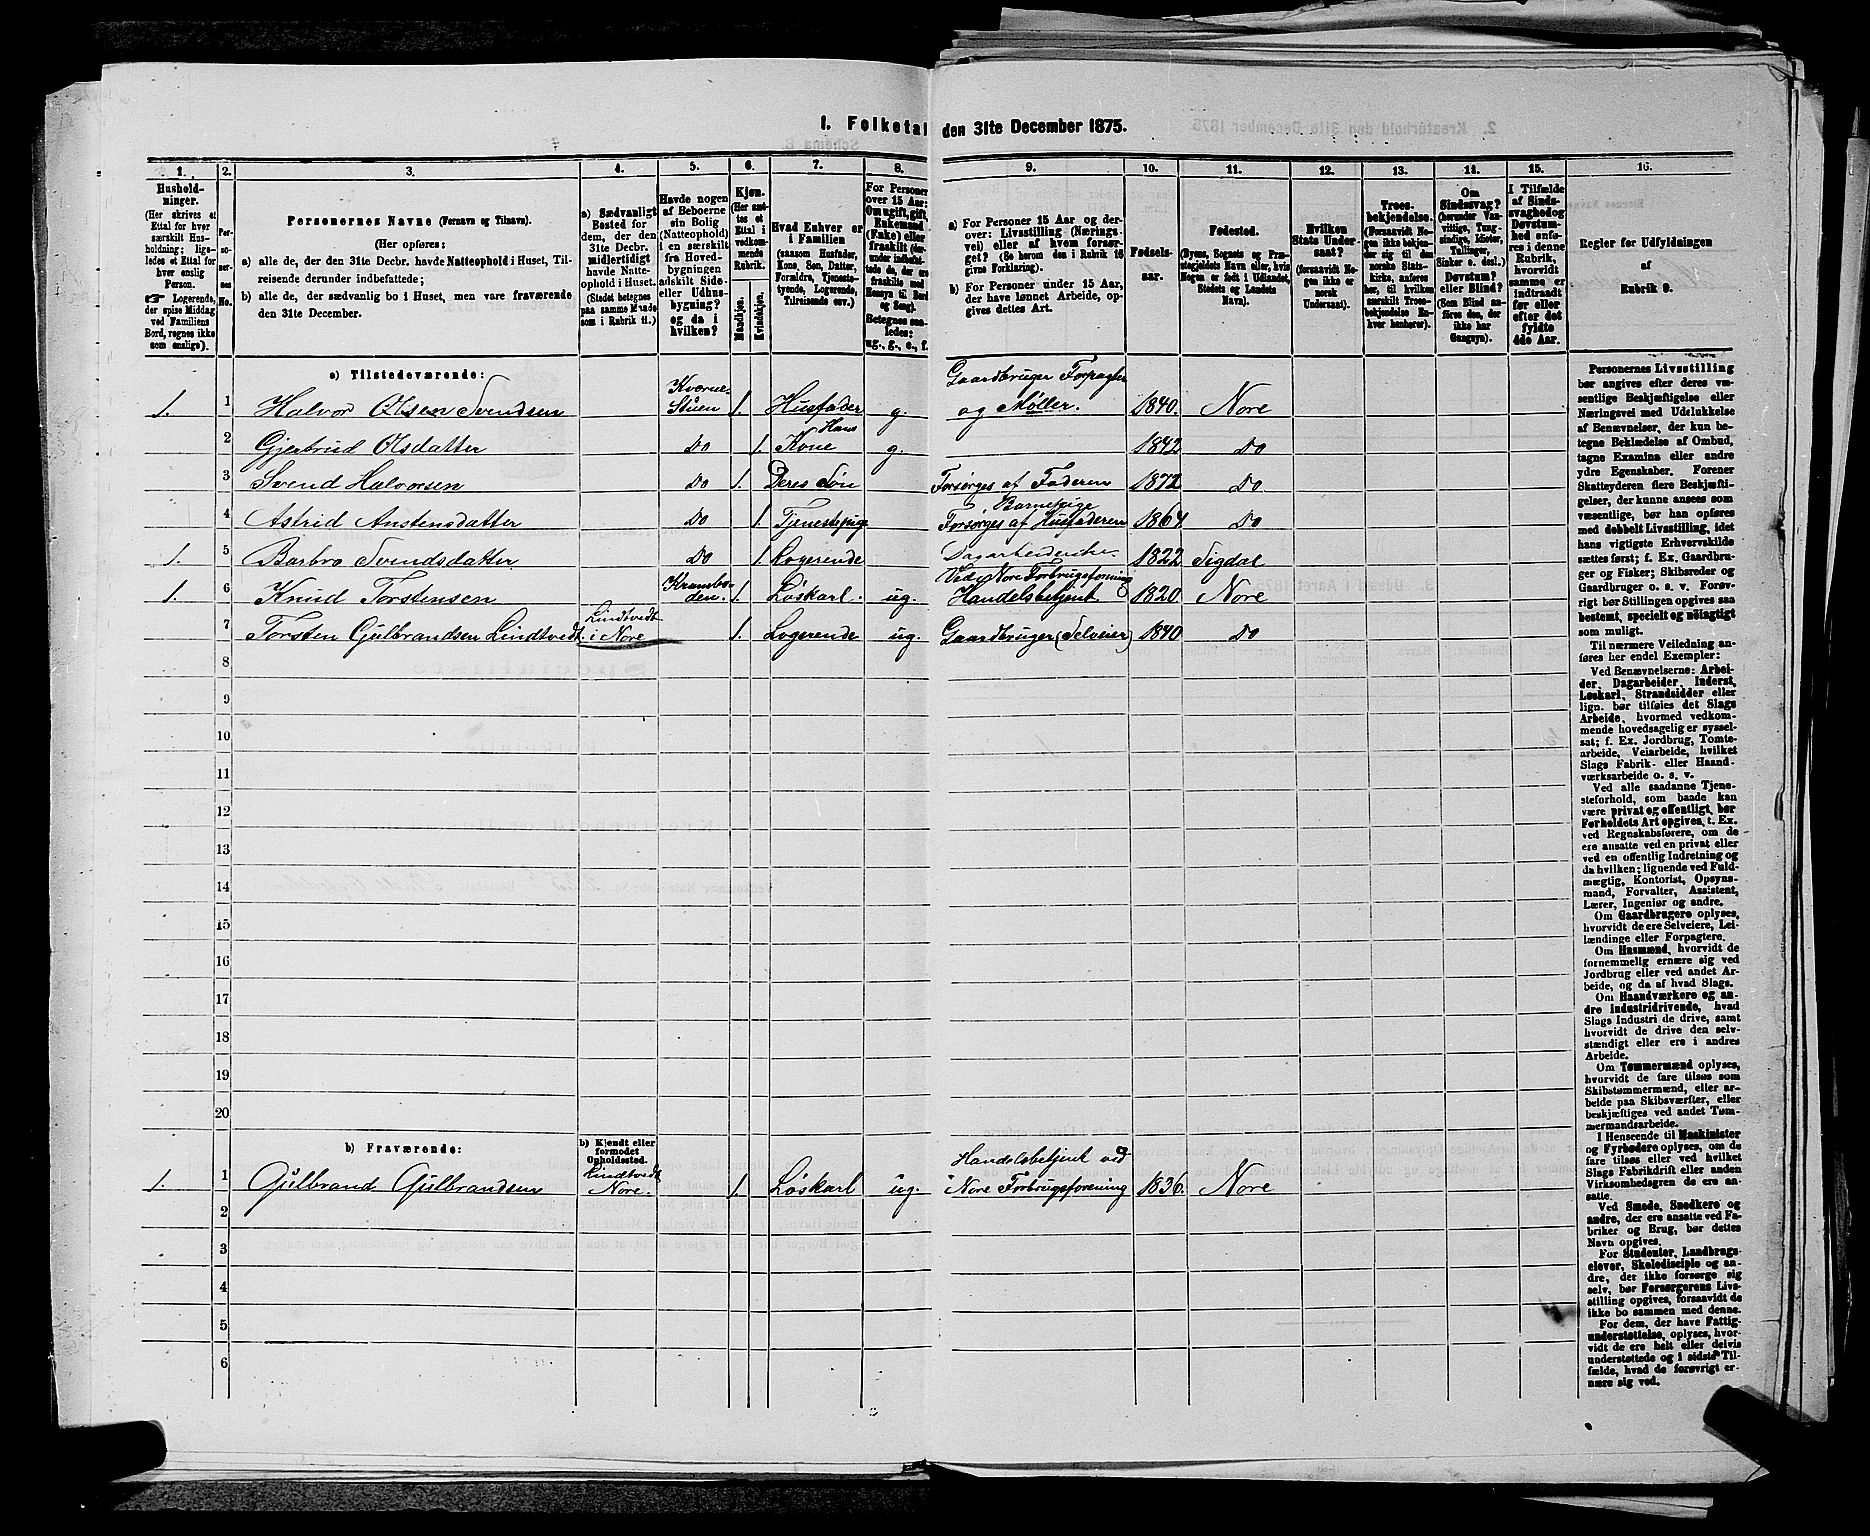 1. Folketal den 31te December 1875.
1. 2. 3. 4. 5. 6. 7. 8. 9. 10. 11. 12. 13. 14. 15. 16.
Hushold-
ninger.
(Her skrives et
Ettal for hver
særskilt Hus-
holdning; lige-
ledes et Ettal for
hver enslig
Person.
☞ Logerende,
der spise Middag
ved Familiens
Bord, regnes ikke
som enslige).
Per-
so-
ner-
nes
No.
Personernes Navne (Fornavn og Tilnavn).
(Her opføres:
a) alle de, der den 31te Decbr. havde Natteophold i Huset, Til-
reisende derunder indbefattede;
b) alle de, der sædvanlig bo i Huset, men vare fraværende
den 31te December.
a) Sædvanligt
Bosted for
dem, der den
31te Decbr.
midlertidigt
havde Natte-
ophold i Huset.
(Stedet betegnes
paa samme Maade
som i Rubrik 11.)
Havde nogen
af Beboerne
sin Bolig
(Natteophold)
i en særskilt
fra Hoved-
bygningen
adskilt Side-
eller Udhus-
bygning?
og da i
hvilken?
Kjøn.
(Her sæt-
tes et
Ettal i
vedkom-
mende
Rubrik.
Mandkjøn.
Kvindekjøn.
Hvad Enhver er
i Familien
(saasom Husfader,
Kone, Søn, Datter,
Forældre, Tjeneste-
tyende, Logerende,
Tilreisende osv.)
For Personer
over 15 Aar:
Om ugift, gift,
Enkemand
(Enke) eller
fraskilt
Betegnes saa-
ledes:
ug., g., e., f.
a) For Personer 15 Aar og der-
over: Livsstilling (Nærings-
vei) eller af hvem forsør-
get? (Se herom den i Rubrik 16
givne Forklaring).
b) For Personer under 15 Aar,
der have lønnet Arbeide, op-
gives dettes Art.
Fødsels-
aar.
Fødested.
(Byens, Sognets og Præ-
stegjeldets Navn eller, hvis
Nogen er født i Udlandet,
Stedets og Landets
Navn).
Hvilken
Stats Under-
saat?
(forsaavidt No-
gen ikke er
norsk
Undersaat).
Troes-
bekjendelse.
(Forsaavidt No-
gen ikke bekjen-
der sig til den
norske Stats-
kirke, anføres
her, til hvilken
særskilt Troes-
bekjendelse En-
hver henhører).
Om
Sindssvag?
(herunder Van-
vittige, Tung-
sindige, Idioter,
Tullinger,
Sinker o. desl.)
Døvstum?
eller Blind?
(Som Blind an-
føres den, der
ikke har
Gangsyn).
I Tilfælde
af Sinds-
svaghed og
Døvstum-
hed anfø-
res i denne
Rubrik,
hvorvidt
samme er
indtraadt
før eller
efter det
fyldte
4de Aar.
Regler for Udfyldningen
af
Rubrik 9.
a) Tilstedeværende:
1. 1 Halvor Olsen Svendsen Kværne-Stuen 1. Husfader g. Gaardbruger Forpagter og Møller. 1840. Nore
2 Gjertrud Olsdatter Do 1. Hans Kone g. 1842 Do
3 Svend Halvorsen Do 1. Deres Søn Forsørges af Faderen 1872 Do
4 Astrid Anstensdatter Do 1. Tjenestepige Barnepige Forsørges af Husfaderen 1864 Do
1. 5 Barbro Svendsdatter Do 1. Logerende Dagarbeiderske. 1822 Sigdal
1. 6 Knud Torstensen Krambo-den. 1. Løskarl. ug. Ved Nore Forbrugsforening Handelsbetjent 1820 Nore
7 Torsten Gulbrandsen Lindtvedt Lindtvedt i Nore 1. Logerende ug. Gaardbruger (Selveier) 1840 Do
8
9
10
11
12
13
14
15
16
17
18
19
20
b) Fraværende:
b) Kjendt eller
formodet
Opholdssted.
1. 1 Gulbrand Gulbrandsen Lindtvedt Nore. 1. Løskarl ug. Handelsbetjent ved Nore Forbrugsforening 1836. Nore
2
3
4
5
6
Personernes Livsstilling
bør angives efter deres væ-
sentlige Beskjæftigelse eller
Næringsvei med Udelukkelse
af Benævnelser, der kun be-
tegne Beklædelse af Ombud,
tagne Examina eller andre
ydre Egenskaber. Forener
Skatteyderen flere Beskjæfti-
gelser, der kunne ansees som
væsentlige, bør han opføres
med dobbelt Livsstilling, idet
hans vigtigste Erhvervskilde
sættes først; f. Ex. Gaardbru-
ger og Fisker; Skibsreder og
Gaardbruger o. s. v. Forøv-
rigt bør Stillingen opgives saa
bestemt, specielt og nøiagtigt
som muligt.
Til nærmere Veiledning an-
føres her endel Exempler:
Ved Benævnelserne: Arbei-
der, Dagarbeider, Inderst,
Løskarl, Strandsidder eller
lign. bør tilføies det Slags
Arbeide, hvormed vedkom-
mende hovedsagelig er syssel-
sat; f. Ex. Jordbrug, Tomte-
arbeide, Veiarbeide, hvilket
Slags Fabrik- eller Haand-
værksarbeide o. s. v.
Ved alle saadanne Tjene-
steforhold, som baade kan
være privat og offentligt, bør
Forholdets Art opgives, t. Ex.
ved Regnskabsførere, om de
ere ansatte ved en privat eller
ved en offentlig Indretning og
da hvilken; lignende ved Fuld-
mægtig, Kontorist, Opsyns-
mand, Forvalter, Assistent,
Lærer, Ingeniør og andre.
Om Gaardbrugere oplyses,
hvorvidt de ere Selveiere, Lei-
lændinge eller Forpagtere.
Om Husmænd, hvorvidt de
fornemmelig ernære sig ved
Jordbrug eller ved andet Ar-
beide, og da af hvad Slags.
Om Haandværkere og an-
dre industridrivende, hvad
Slags Industri de drive, samt
hvorvidt de drive den selv-
stændigt eller ere i andres
Arbeide.
Om Tømmermænd oplyses,
hvorvidt de fare tilsøs som
Skibstømmermænd, eller ar-
beide paa Skibsværfter, eller
beskjæftiges ved andet Tøm-
mermandsarbeide.
I Henseende til Maskinister
og Fyrbødere oplyses, om de
fare tilsøs eller ved hvilket
Slags Fabrikdrift eller anden
Virksomhedsgren de ere an-
satte.
Ved Smede, Snedkere og
andre, der ere ansatte ved Fa-
briker og Brug, bør dettes
Navn opgives.
For Studenter, Landbrugs-
elever, Skoledisciple og an-
dre, der ikke forsørge sig
selv, bør Forsørgerens Livs-
stilling opgives, forsaavidt de
ikke bo sammen med denne.
For dem, der have Fattig-
understøttelse, oplyses, hvor-
vidt de ere helt eller delvis
understøttede og i sidste Til-
fælde, hvad de forøvrigt er-
nære sig ved.